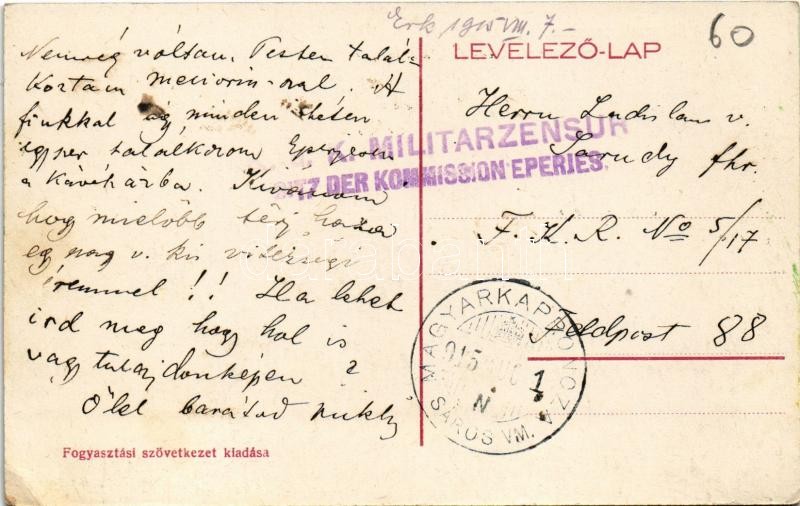 Erk 1915 VIII. 7.-
60
LEVELEZŐ-LAP
Nemrég voltam Pesten talál-
koztam
fiukkal így minden héten
egyszer találkozom Eperjesen
a kávéházba. Kívánom
hogy mielőbb térj haza
egy nagy v. kis vitézségi
éremmel !! Ha lehet
ird meg hogy hol is
vagy tulajdonképen ?
Ölel barátod Mikly
K. u. K. MILITÄRZENSUR
SITZ DER KOMMISSION EPERJES.
Herrn Ladislau v.
fhr.
F. K. R. No 5/17
Feldpost 88
MAGYARKAPRONCZA
915 AUG 1
N
SÁROS VM.
Fogyasztási szövetkezet kiadása